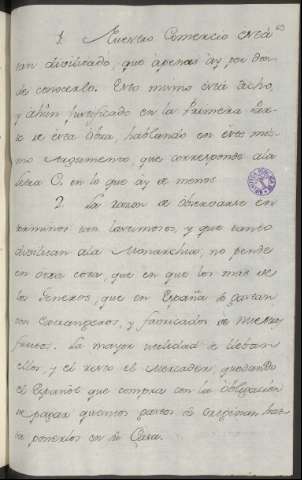 1. Nuestro Comercio está
tan disipado, que apenas ay por don-
de conocerlo. Esto mismo está dicho,
y ahun justificado en la Primera Par-
te de esta Obra, hablando en este mis-
mo Argumento, que corresponde ala
letra O. en lo que ay de menos.
2. La razon de observarse en
terminos tan lastimosos, y que tanto
disipan ala Monarchia, no pende
en otra cosa, que en que los mas de
los Generos, que en España se gastan
son Estrangeros, y fabricados de nuestros
frutos. La mayor utilidad se llevan
ellos, y el resto el Mercader quedando
el Español que compra con la obligacion
de pagar quantos gastos se originan has-
ta ponerlos en su Casa.